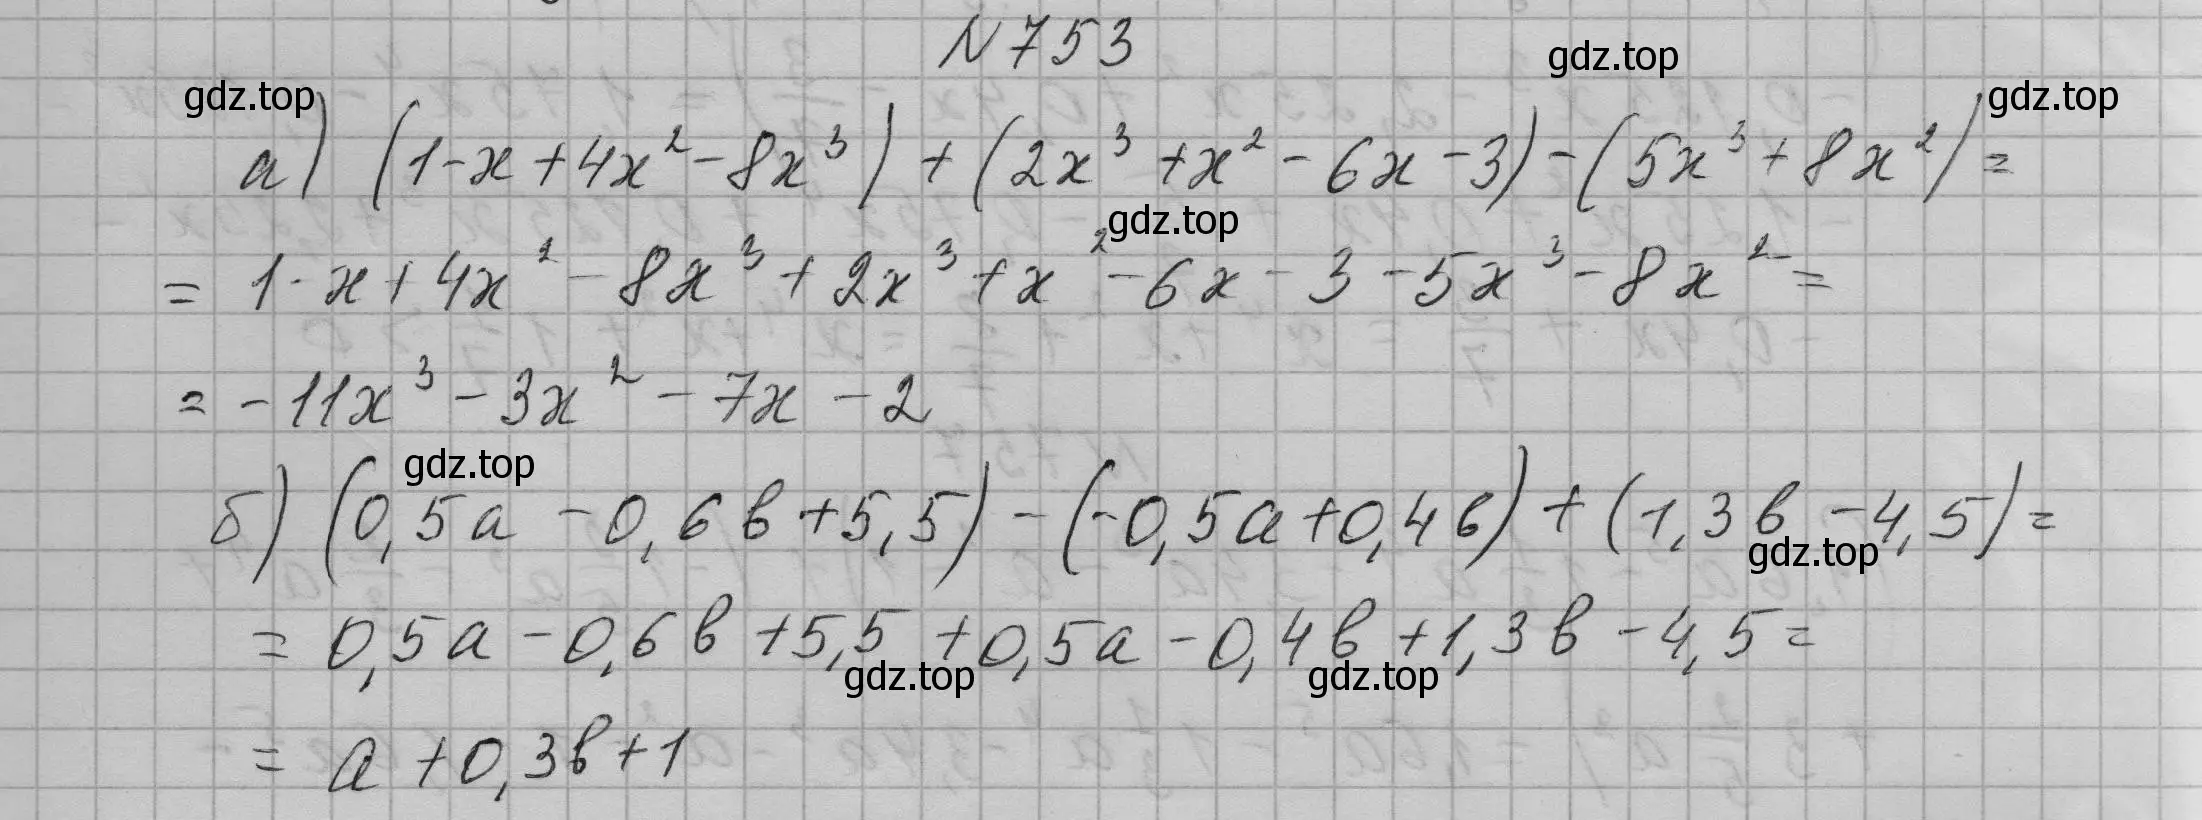 N 753
gdz.top
gdz.top
gdz.top
а) (1-x+4x²-8x³)+(2x³+x²-6x-3)-(5x³+8x²)=
gdz.top
= 1-x+4x²-8x³+2x³+x²-6x-3-5x³-8x²=
= -11x³-3x²-7x-2
gdz.top
б) (0,5a-0,6в+5,5)-(-0,5a+0,4в)+(1,3в-4,5)=
gdz.top
= 0,5a-0,6в+5,5+0,5a-0,4в+1,3в-4,5=
gdz.top
gdz.top
= a+0,3в+1